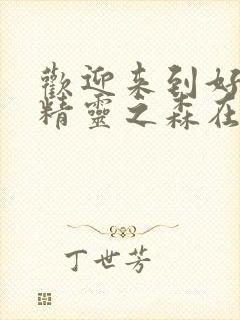 歡迎来到好
精靈之森在
丁世芳